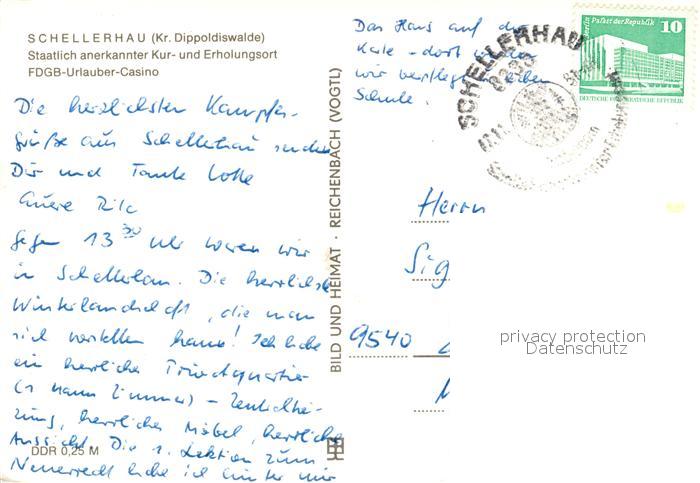 SCHELLERHAU (Kr. Dippoldiswalde)
Staatlich anerkannter Kur- und Erholungsort
FDGB-Urlauber-Casino
Die herzlichsten Kampfes-
grüße aus Schellerhau senden
Dir und Tante Lotte
Eure Rita
Gegen 13 30 Uhr waren wir
in Schellerhau. Die herrlichste
Winterlandschaft, die man
sich vorstellen kann! Ich habe
ein herrliches Privatquartier
(1 Mann Zimmer) – Zentralhei-
zung, herrliche Möbel, herrliche
Aussicht. Die 1. Lektion zum
Neuerrecht habe ich hinter mir
DDR 0,25 M
BILD UND HEIMAT · REICHENBACH (VOGTL)
Das Haus auf der
Karte - dort werden
wir verpflegt, neben
Schule.
SCHELLERHAU
Berlin Palast der Republik
10
DEUTSCHE DEMOKRATISCHE REPUBLIK
Herrn
Sig
9540
privacy protection
Datenschutz